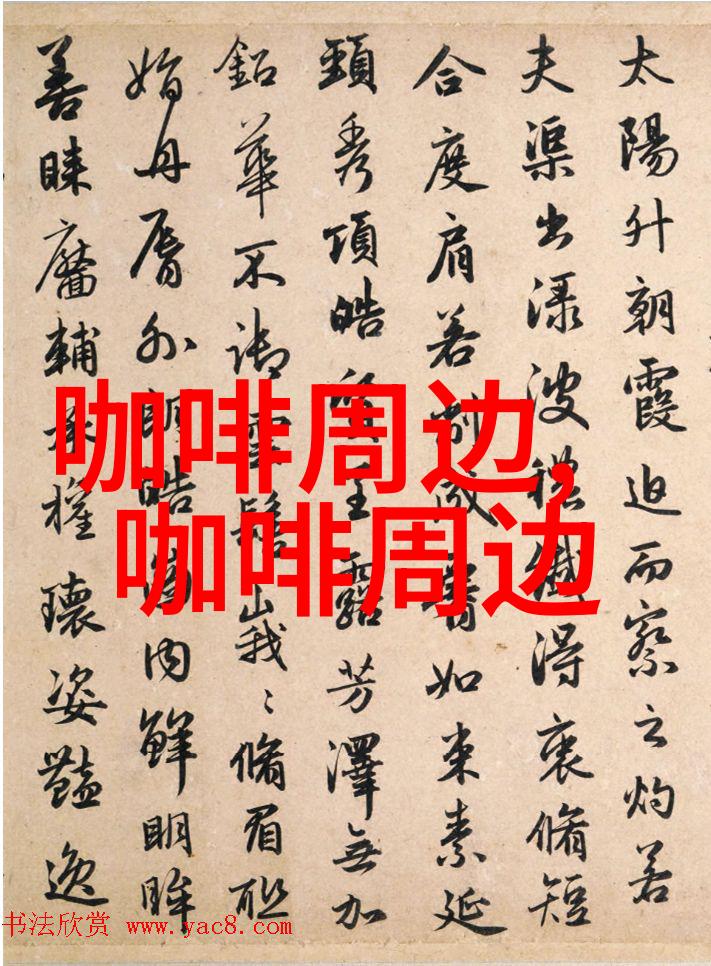 太陽升朝霞迫而察之灼若
夫渠出渌波穠纖得衷脩短
合度肩若削成腰如束素延
頸秀項皓質呈露芳澤無加
鉛華不御雲髻峩〻脩眉聯
娟丹脣外朗皓齒内鮮明眸
善睞靨輔承權瓌姿豔逸
咖啡周边,
咖啡周边
书法欣赏 www.yac8.com